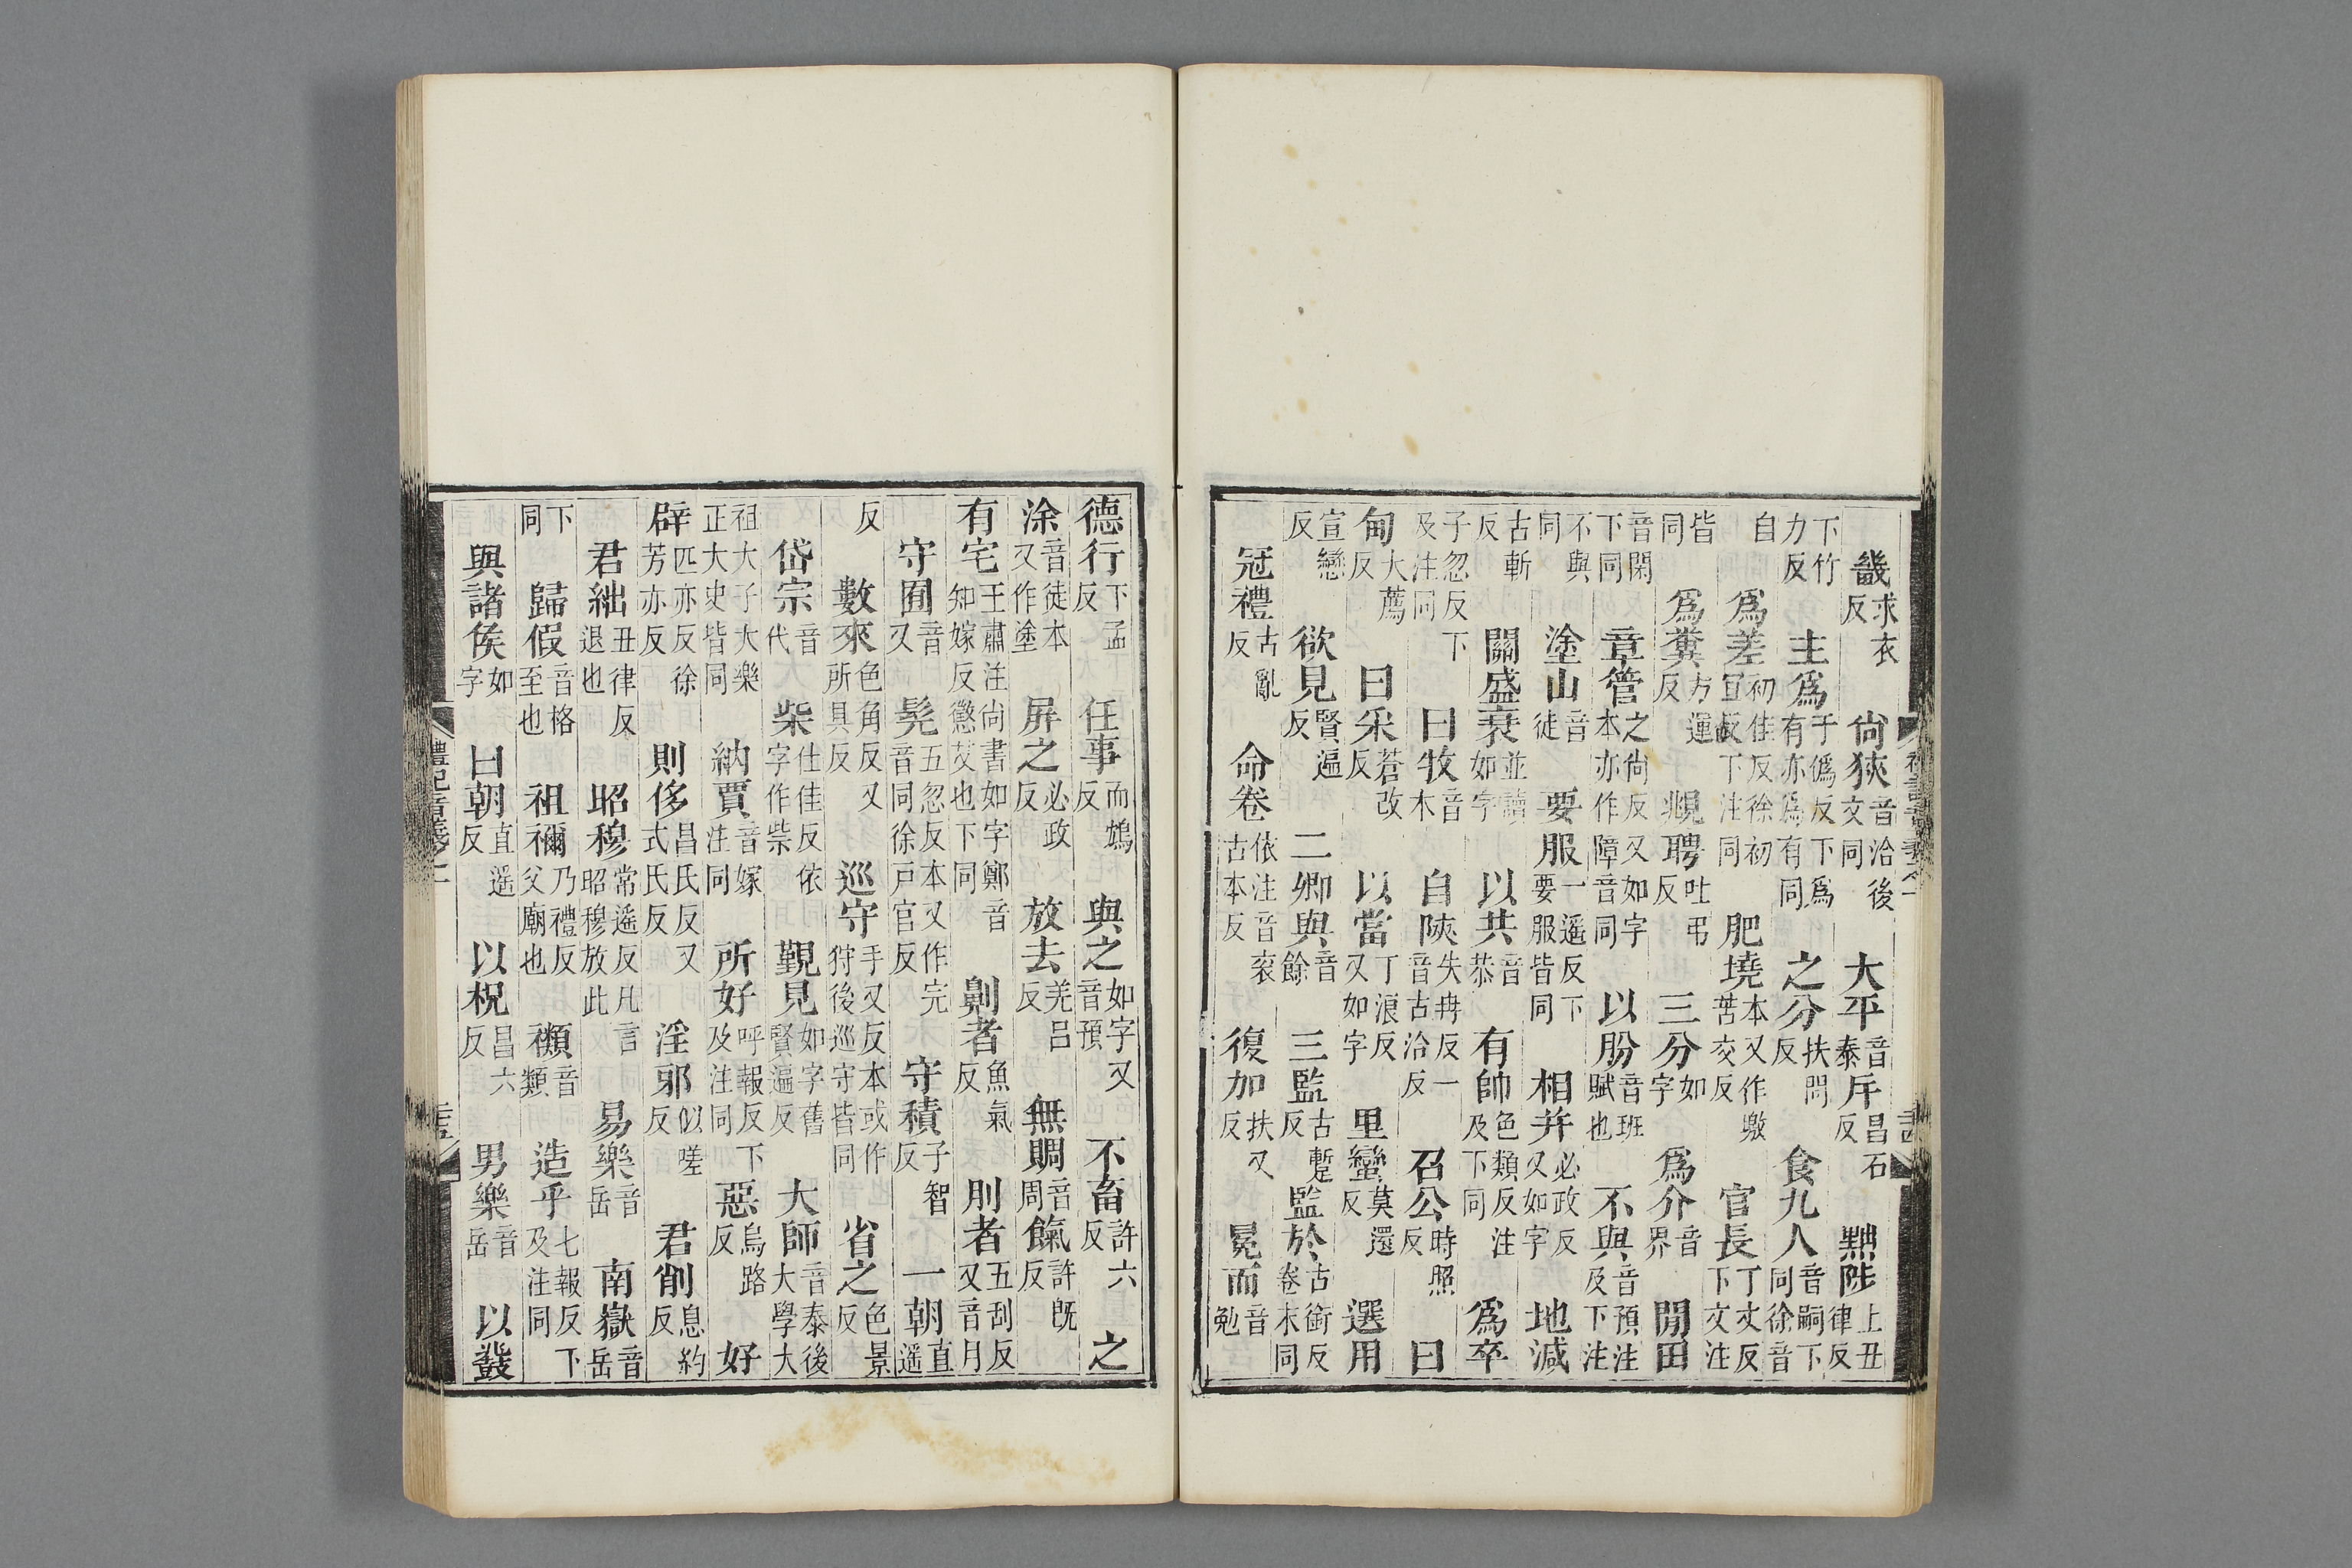 畿求衣反 尙狹音洽後文同 大平音泰 斥昌石反 黜陟上丑律反
下竹力反 主爲于僞反下爲有亦爲有同 之分扶問反 食九人音嗣下同徐音
自 爲差初佳反徐初宜反下注同 肥墝本又作墽苦交反 官長丁丈反下文注
皆同 爲糞方運反 覜聘吐弔反 三分如字 爲介音界 閒田
音閑下同 章管之尙反又如字本亦作障音同 以朌音班賦也 不與音預注及下注
不與同 塗山音徒 要服一遥反下要服皆同 相幷必政反又如字 地減
古斬反 關盛衰並如字讀 以共音恭 有帥色類反注及下同 爲卒
子忽反下及注同 曰牧音木 自陝失冉反一音古洽反 召公時照反 曰
甸大薦反 曰采蒼改反 以當丁浪反又如字 里蠻莫還反 選用
宣戀反 欲見賢遍反 二卿與音餘 三監古蹔反 監於古銜反卷末同
冠禮古亂反 命卷依注音袞古本反 復加扶又反 冕而音勉
德行下孟反 任事而鴆反 與之如字又音預 不畜許六反 之
涂音徒本又作塗 屏之必政反 放去羌呂反 無賙音周 餼許旣反
有宅王肅注尙書如字鄭音知嫁反懲艾也下同 劓者魚氣反 刖者五刮反又音月
守囿音又 髡五忽反本又作完音同徐戶官反 守積子智反 一朝直遥
反 數來色角反又所具反 巡守手又反本或作狩後巡守皆同 省之色景反
岱宗音代 柴仕佳反依字作祡 覲見如字舊賢遍反 大師音泰後大學大
祖大子大樂正大史皆同 納賈音嫁注同 所好呼報反下及注同 惡烏路反 好
辟匹亦反徐芳亦反 則侈昌氏反又式氏反 淫邪似嗟反 君削息約反
君絀丑律反退也 昭穆常遥反凡言昭穆放此 易樂音岳 南嶽音岳
下同 歸假音格至也 祖禰乃禮反父廟也 禷音類 造乎七報反下及注同
與諸侯如字 曰朝直遥反 以柷昌六反 男樂音岳 以鼗
禮記音義之一